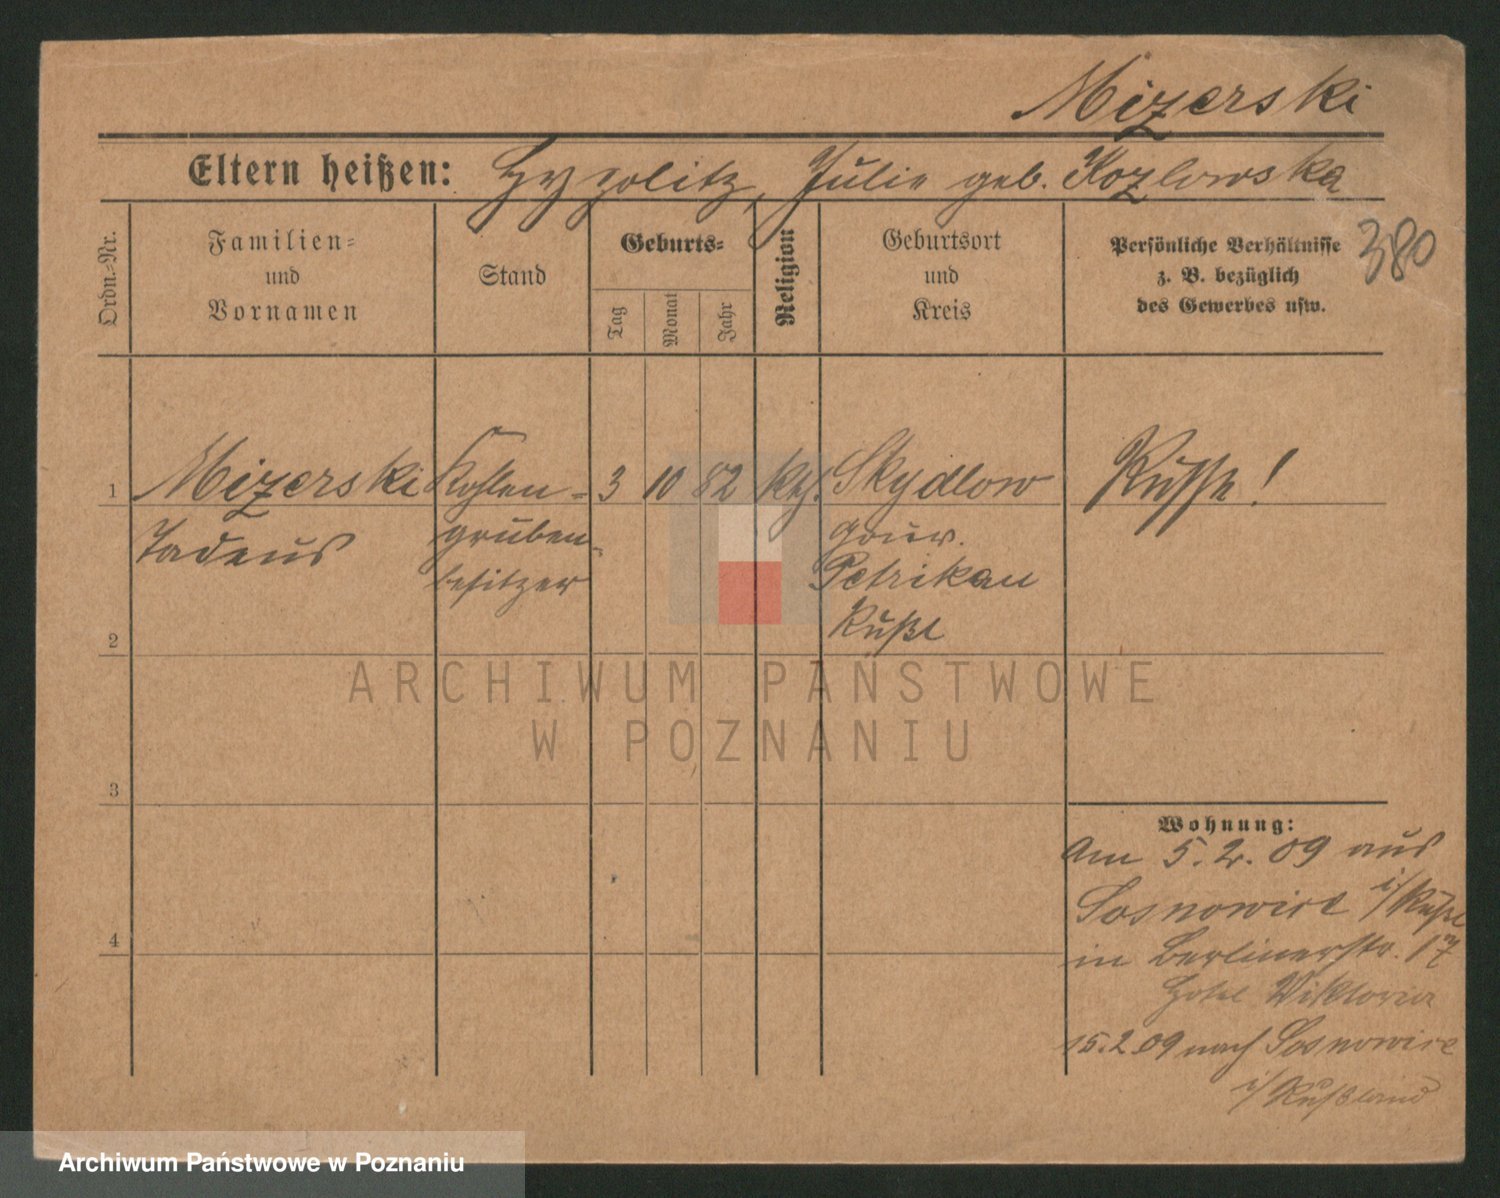 Mizerski
Eltern heißen: Hypolitz, Julie geb. Kozlowska
380
Ordn.-Nr.
Familien-
und
Vornamen
Stand
Geburts-
Tag
Monat
Jahr
Religion
Geburtsort
und
Kreis
Persönliche Verhältnisse
z. B. bezüglich
des Gewerbes usw.
1
Mizerski
Tadeus
Kohlen-
gruben-
besitzer
3
10
82
kth.
Skydlow
Gouv.
Petrikau
Rußl
Russe!
2
3
4
Wohnung:
Am 5.2.09 aus
Sosnowice i/Rußl
in Berlinerstr. 17
Hotel Wiktoria
15.2.09 nach Sosnowice
i/Rußland
ARCHIWUM PAŃSTWOWE
W POZNANIU
Archiwum Państwowe w Poznaniu